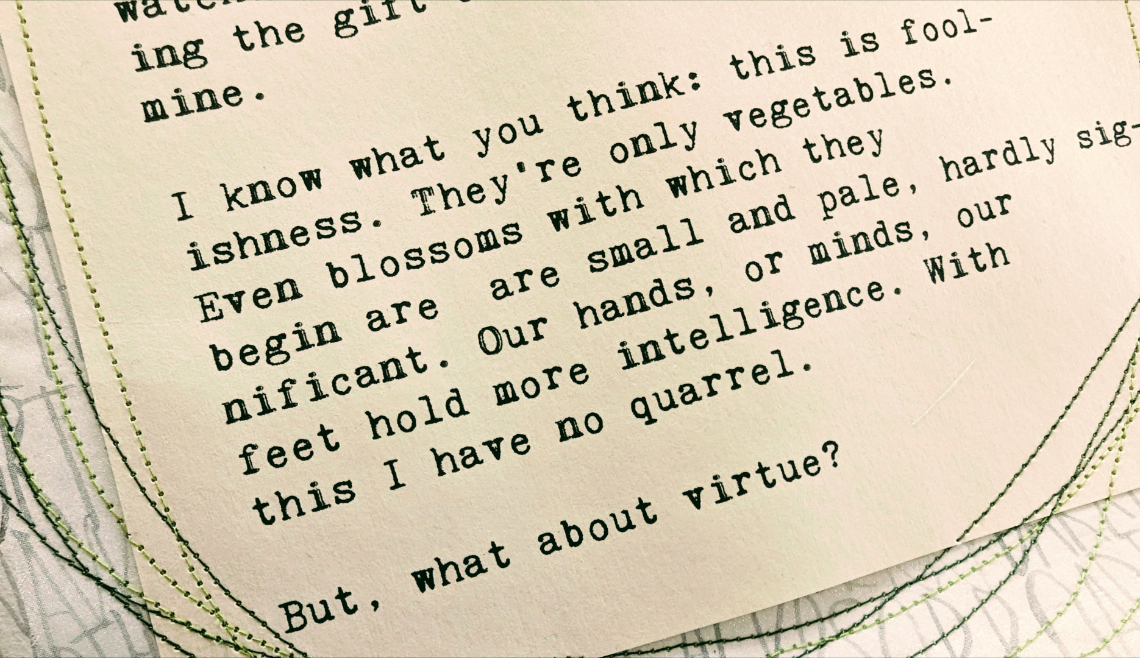 ing the gift
mine.
I know what you think: this is fool-
ishness. They're only vegetables.
Even blossoms with which they
begin are  are small and pale, hardly sig-
nificant. Our hands, or minds, our
feet hold more intelligence. With
this I have no quarrel.
But, what about virtue?